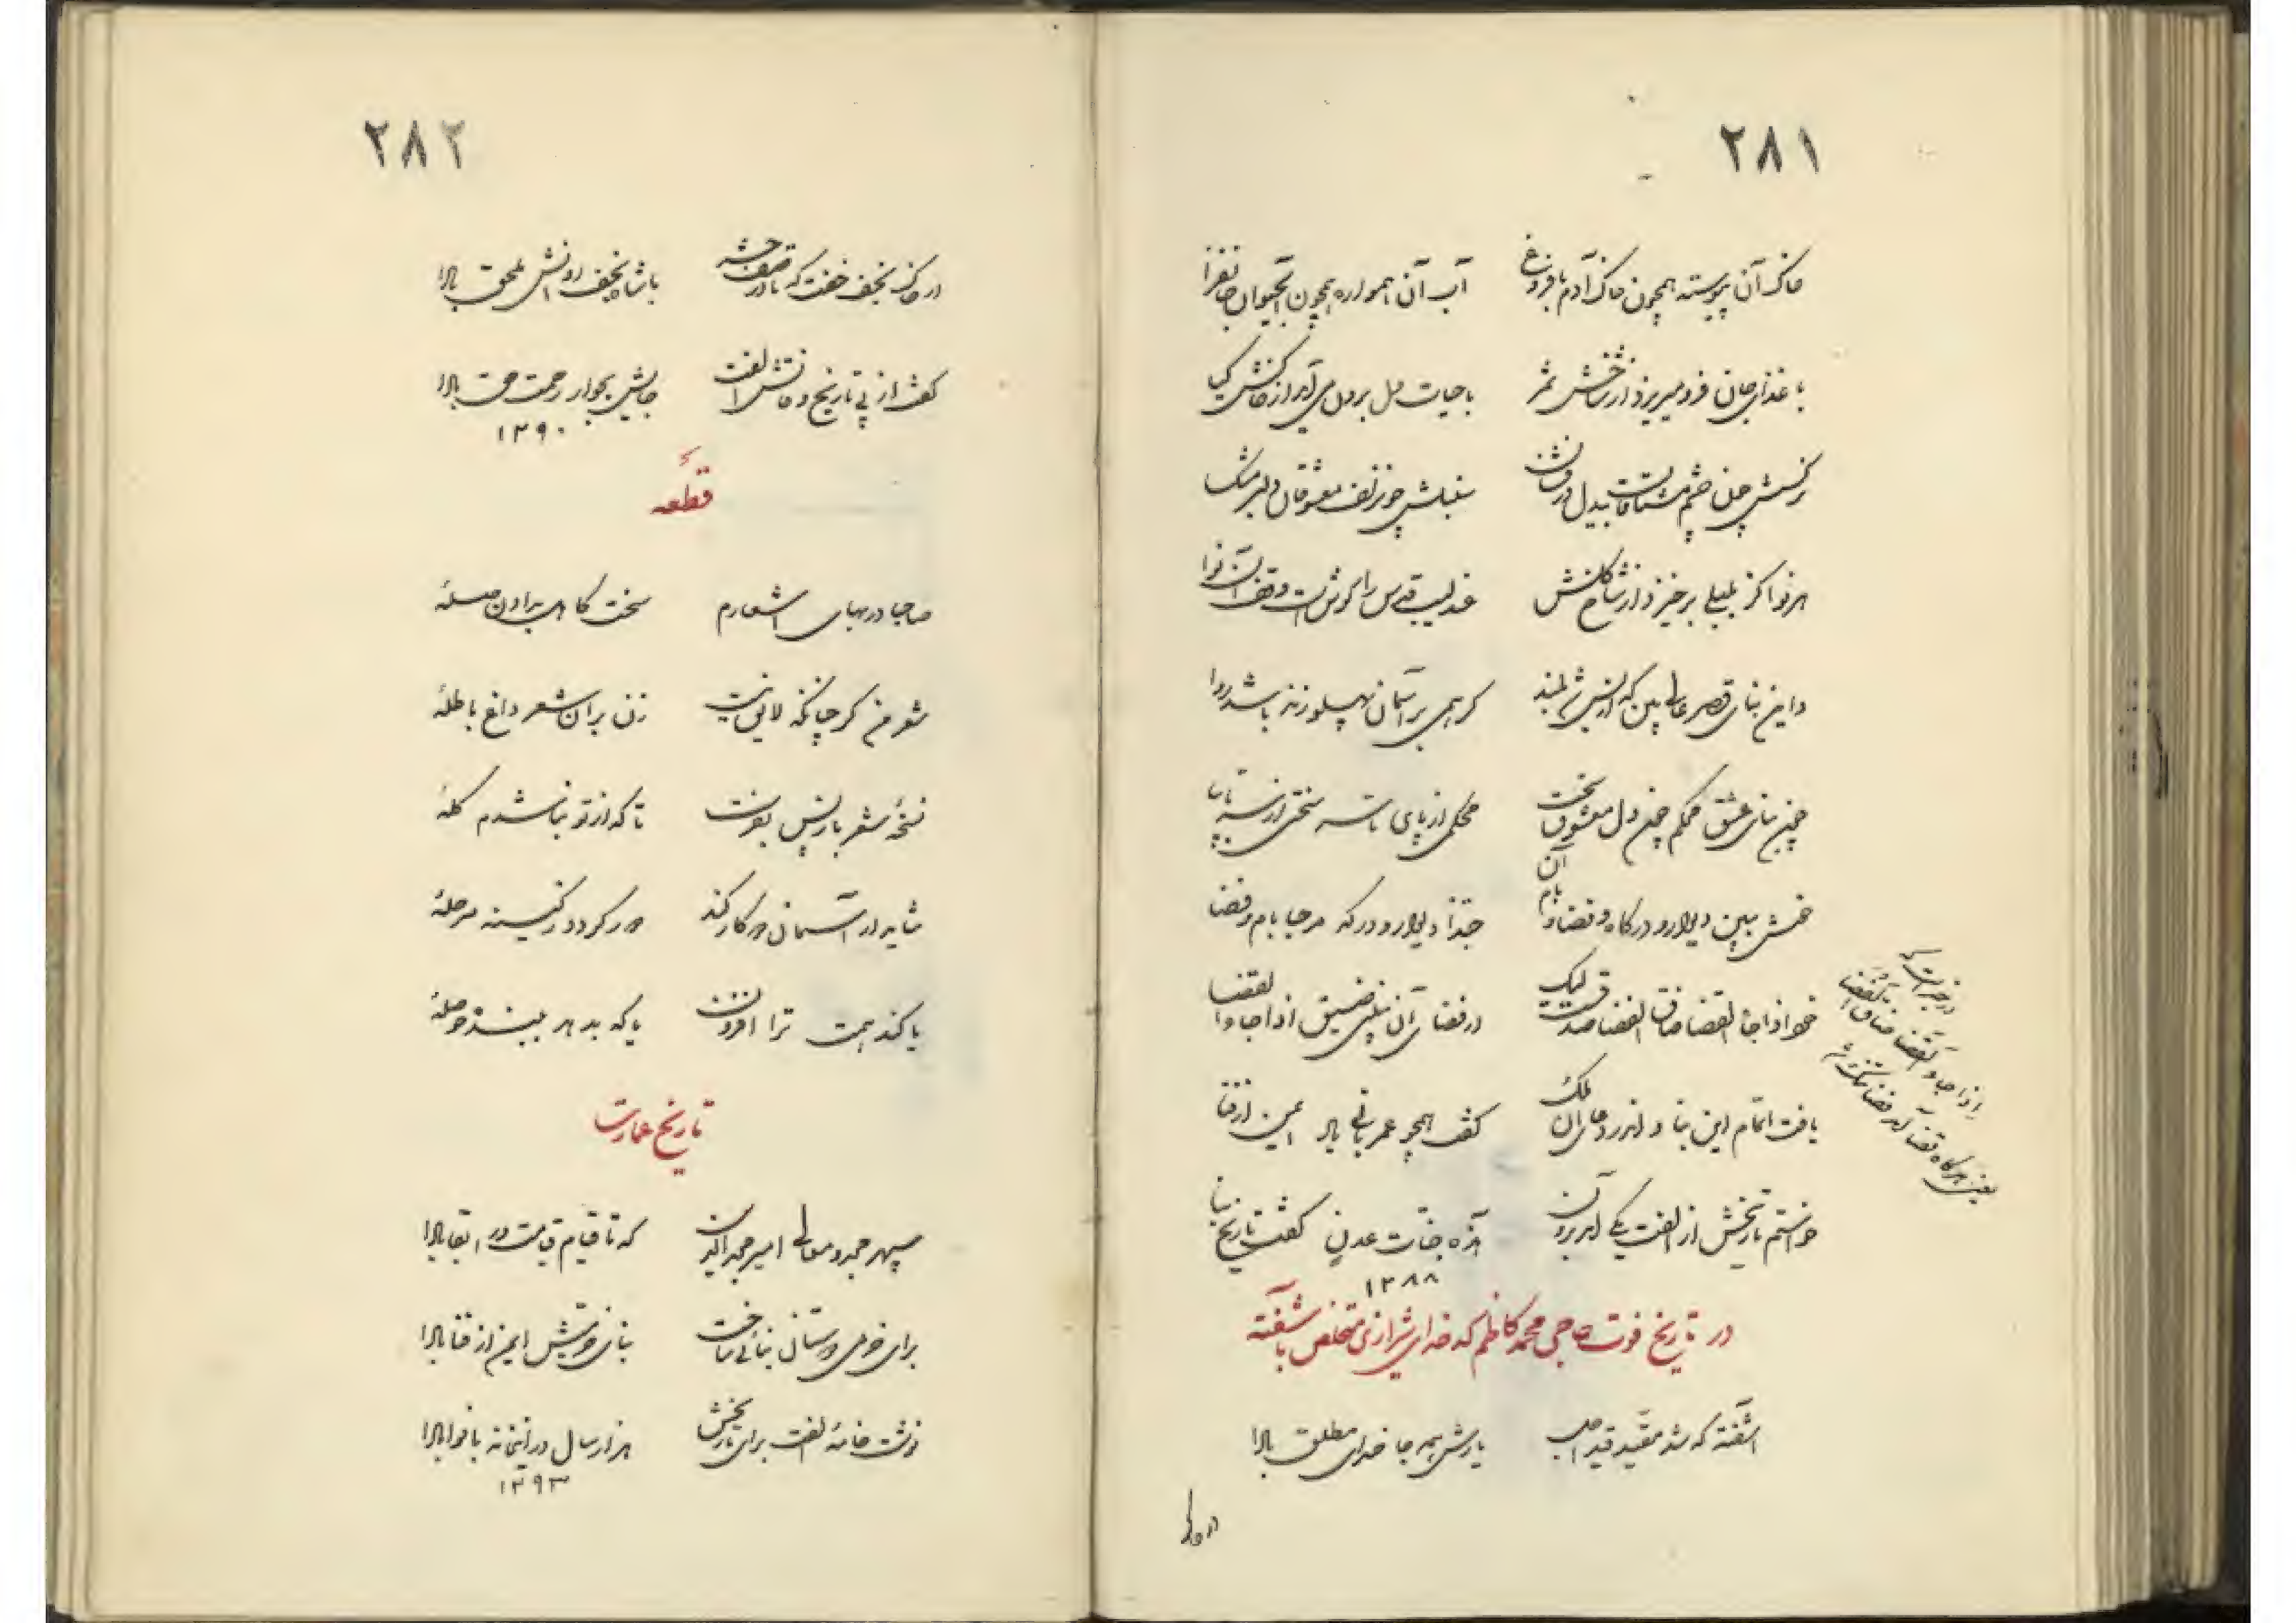 ۲۸۱
خاک آن پیوسته همچون خاک آدم با فروغ آب آن همواره همچون آب حیوان جانفزا
با غذای جان فرو میریزد از شاخش ثمر با حیات دل برون می آید از خاکش گیا
نرگسش چون چشم مشتاقان بیدل سنبلش چون زلف معشوقان دلبر مشک
هر نوا کز بلبلی برخیزد از شاخ گلش عندلیب قدس را گوش است وقف آن نوا
و این بنای قصر عالی بین که از بس شد بلند گر همی بر آسمان پهلو زند باشد روا
چون بنای عشق محکم چون دل معشوق سخت محکمی از پای تا سر سختی از سر تا بپا
خوش ببین دیوار و درگاه و فضا و بام آن حبذا دیوار و درگه مرحبا بام و فضا
خود اذا جاء القضا ضاق الفضا صدقست لیک در فضای آن نبینی ضیق اذا جاء القضا
یافت اتمام این بنا و اندر دعای آن ملک گفت همچو عمر بانی باد ایمن از فنا
خواستم تاریخش از الفت یکی آمد برون هذه جنات عدن گفت تاریخ بنا
۱۲۸۸
در خبر است که
اذا جاء القضا ضاق الفضا
یعنی هرگاه قضا آید فضا تنگ شود
در تاریخ فوت حاجی محمد کاظم که خدای شیرازی متخلص بآشفته
آشفته که شد مقید قید اجل یارش همه جا خدای مطلق بادا
در خاک
۲۸۲
در خاک نجف خفت که با شاه نجف روانش ملحق بادا
گفت از پی تاریخ وفاتش الفت جایش بجوار رحمت حق بادا
۱۲۹۰
قطعه
صاحبا در بهای اشعارم سخت کاهی براون صلهٔ
شعر من گر چنانکه لایق نیست زن بر آن شعر داغ باطلهٔ
نسخهٔ شعر باز پس بفرست تا که از تو نباشدم گلهٔ
شاید ار آسمان در کار کند
یا کند همت ترا افزون یا که بدهد ببنده حوصلهٔ
تاریخ عمارت
سپهر مجد و معالی امیر مجدالدین که تا قیام قیامت در بقا بادا
برای خرمی دوستان بنائی ساخت بنای عزتش ایمن از فنا بادا
نوشت خامهٔ الفت برای تاریخش هزار سال در اینخانه با نوا بادا
۱۲۹۳